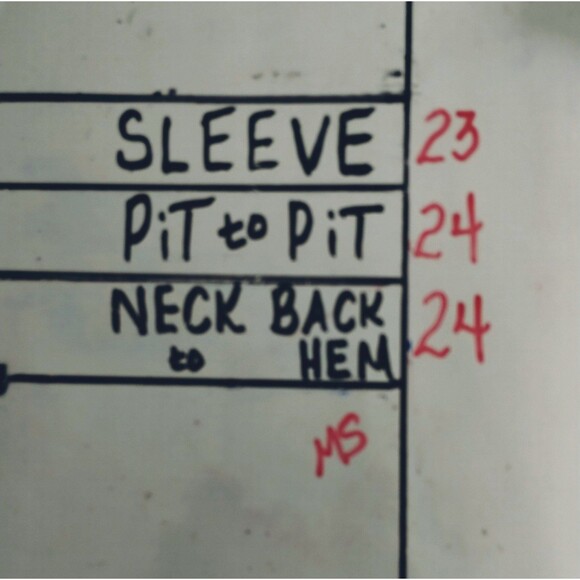 SLEEVE 23
PiT to PiT 24
NECK BACK 24
to HEM
MS